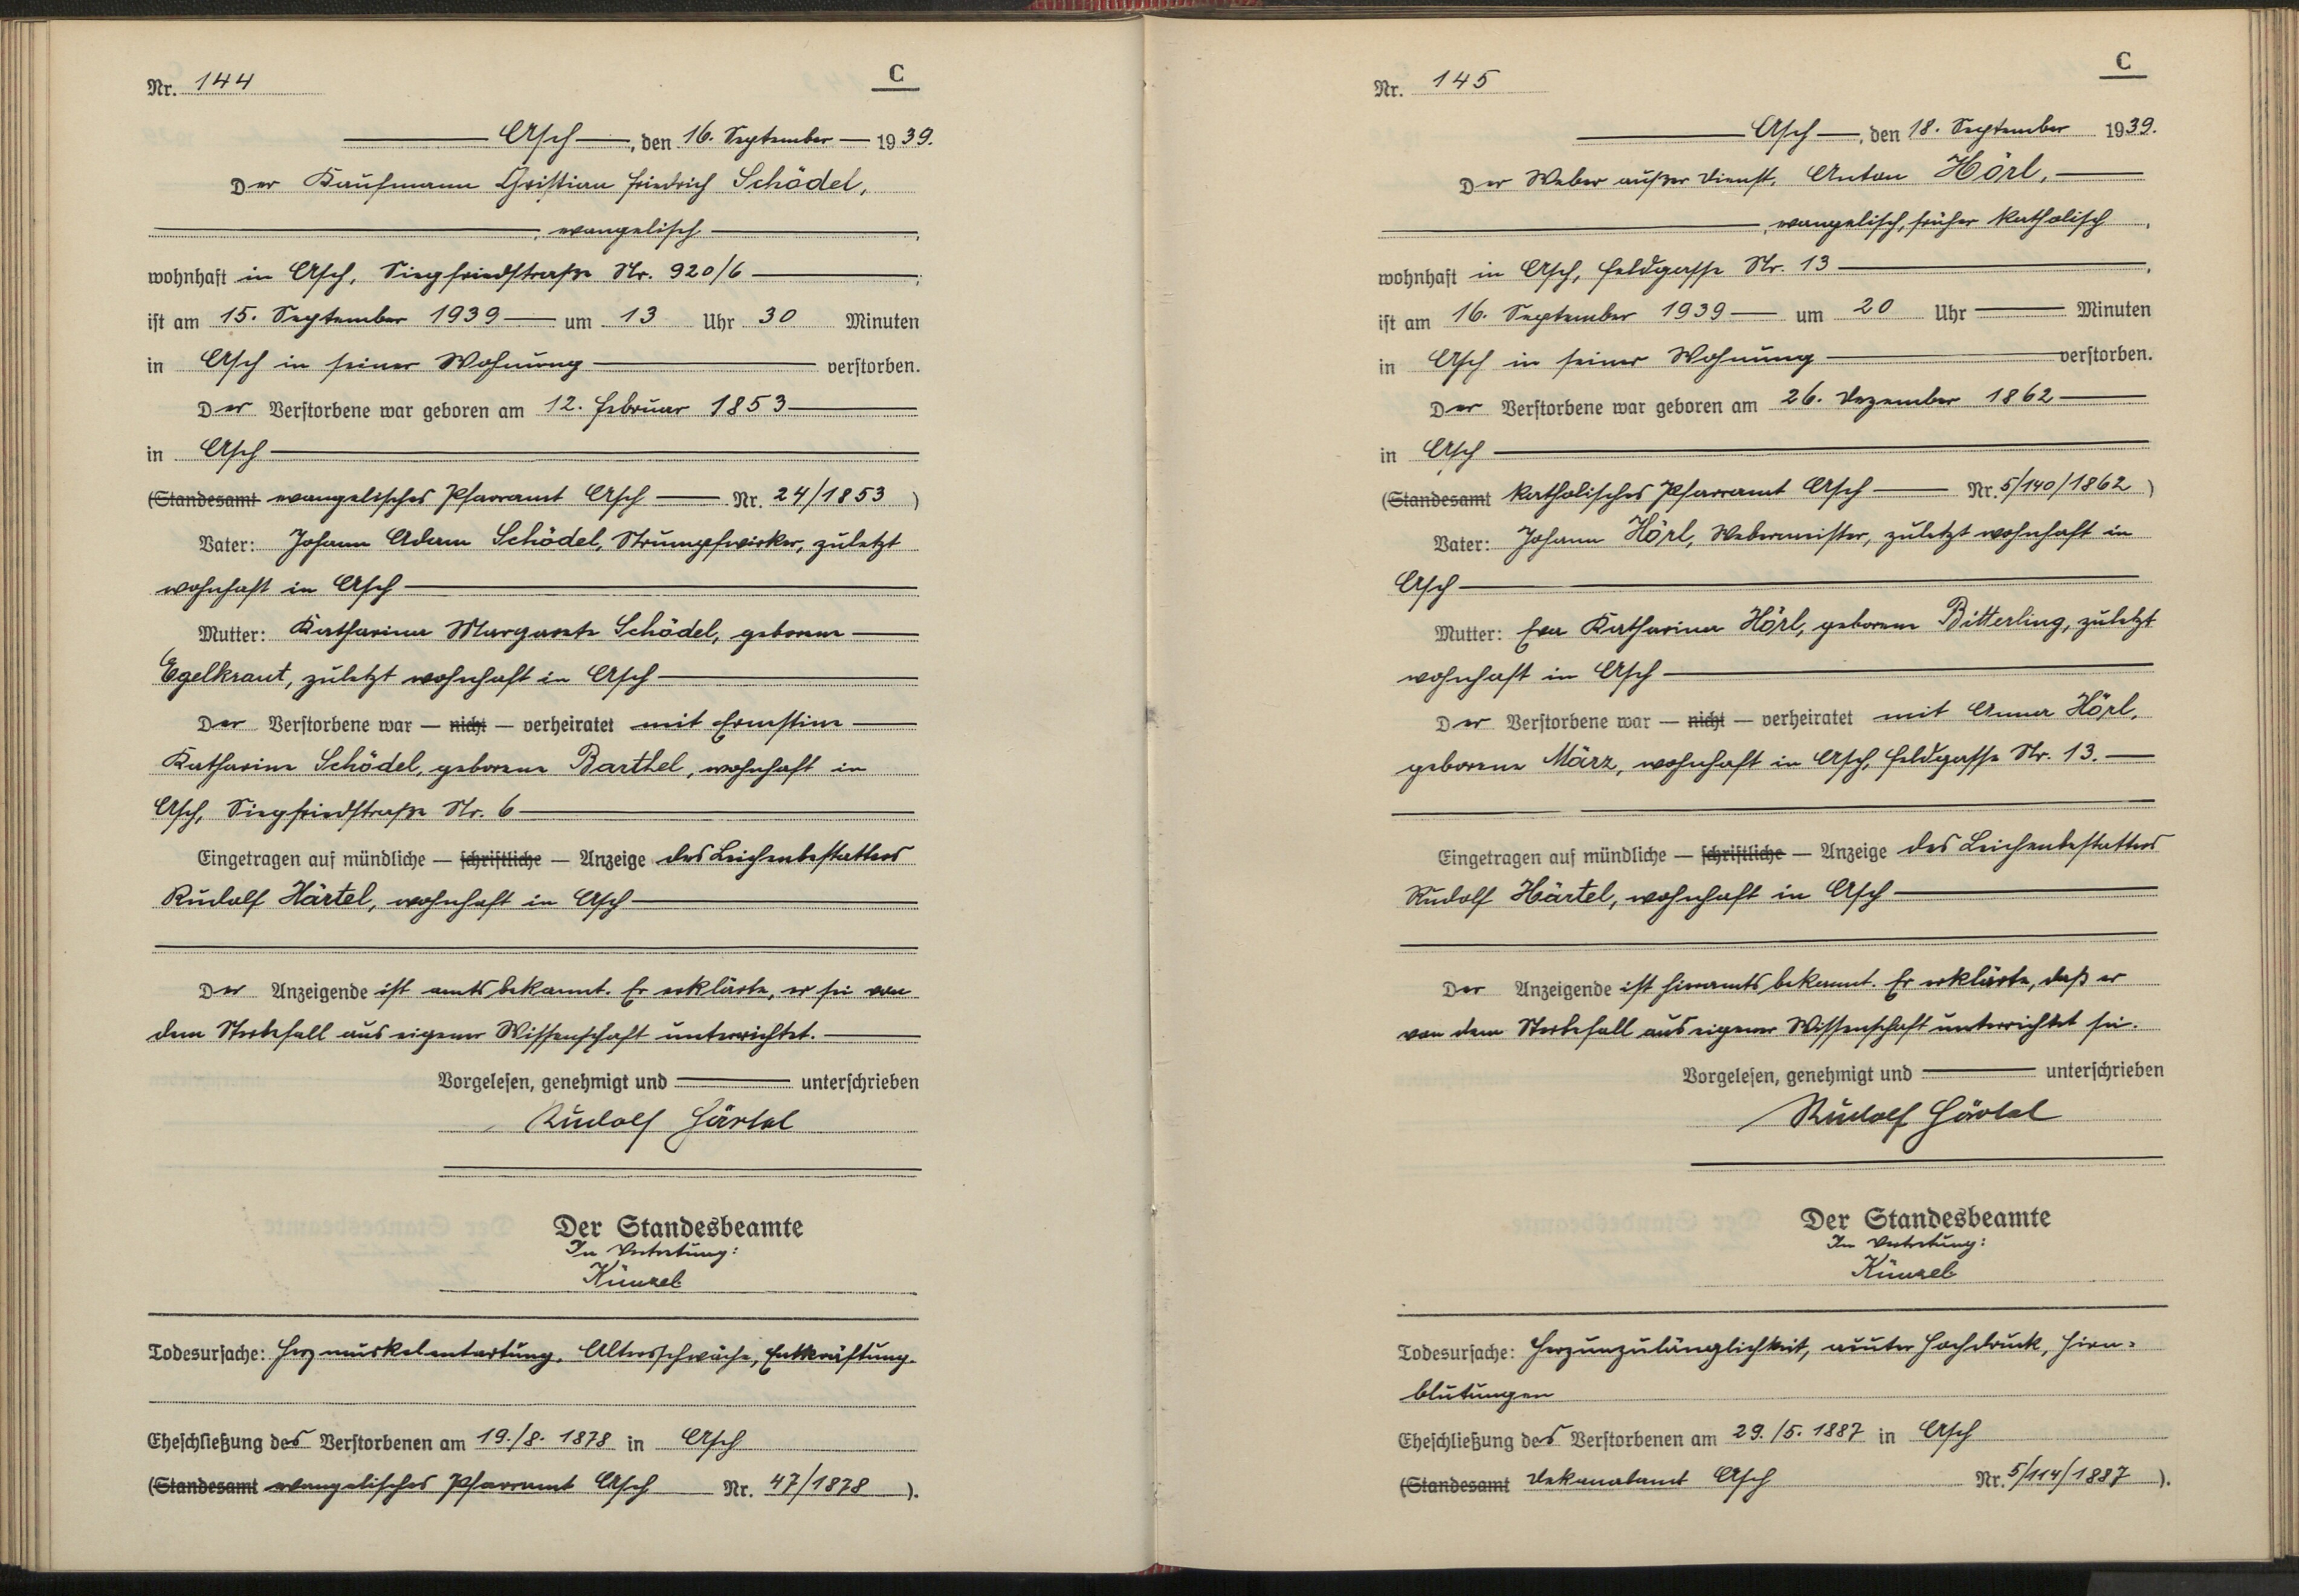 Nr. 144
C
Asch, den 16. September 1939.
Der Kaufmann Christian Friedrich Schödel,
evangelisch,
wohnhaft in Asch, Siegfriedstraße Nr. 920/6;
ist am 15. September 1939 um 13 Uhr 30 Minuten
in Asch in seiner Wohnung verstorben.
Der Verstorbene war geboren am 12. Februar 1853
in Asch
(Standesamt evangelisches Pfarramt Asch Nr. 24/1853)
Vater: Johann Adam Schödel, Strumpfwirker, zuletzt
wohnhaft in Asch
Mutter: Katharina Margareta Schödel, geborene
Egelkraut, zuletzt wohnhaft in Asch
Der Verstorbene war — nicht — verheiratet mit Ernestine
Katharine Schödel, geborene Barthel, wohnhaft in
Asch, Siegfriedstraße Nr. 6
Eingetragen auf mündliche — schriftliche — Anzeige des Leichenbestatters
Rudolf Härtel, wohnhaft in Asch
Der Anzeigende ist amtsbekannt. Er erklärte, er sei von
dem Sterbefall aus eigener Wissenschaft unterrichtet.
Vorgelesen, genehmigt und unterschrieben
Rudolf Härtel
Der Standesbeamte
In Vertretung:
Künzel
Todesursache: Herzmuskelentartung, Altersschwäche, Entkräftung.
Eheschließung des Verstorbenen am 19./8. 1878 in Asch
(Standesamt evangelisches Pfarramt Asch Nr. 47/1878).
Nr. 145
C
Asch, den 18. September 1939.
Der Weber außer Dienst, Anton Hörl,
evangelisch, früher katholisch,
wohnhaft in Asch, Feldgasse Nr. 13,
ist am 16. September 1939 um 20 Uhr Minuten
in Asch in seiner Wohnung verstorben.
Der Verstorbene war geboren am 26. Dezember 1862
in Asch
(Standesamt katholisches Pfarramt Asch Nr. 5/140/1862)
Vater: Johann Hörl, Webermeister, zuletzt wohnhaft in
Asch
Mutter: Eva Katharina Hörl, geborene Bitterling, zuletzt
wohnhaft in Asch
Der Verstorbene war — nicht — verheiratet mit Anna Hörl,
geborene März, wohnhaft in Asch, Feldgasse Nr. 13.
Eingetragen auf mündliche — schriftliche — Anzeige des Leichenbestatters
Rudolf Härtel, wohnhaft in Asch
Der Anzeigende ist hieramts bekannt. Er erklärte, daß er
von dem Sterbefall aus eigener Wissenschaft unterrichtet sei.
Vorgelesen, genehmigt und unterschrieben
Rudolf Härtel
Der Standesbeamte
In Vertretung:
Künzel
Todesursache: Herzunzulänglichkeit, Hochdruck, Hirn-
blutungen
Eheschließung des Verstorbenen am 29./5. 1887 in Asch
(Standesamt Dekanalamt Asch Nr. 5/114/1887).